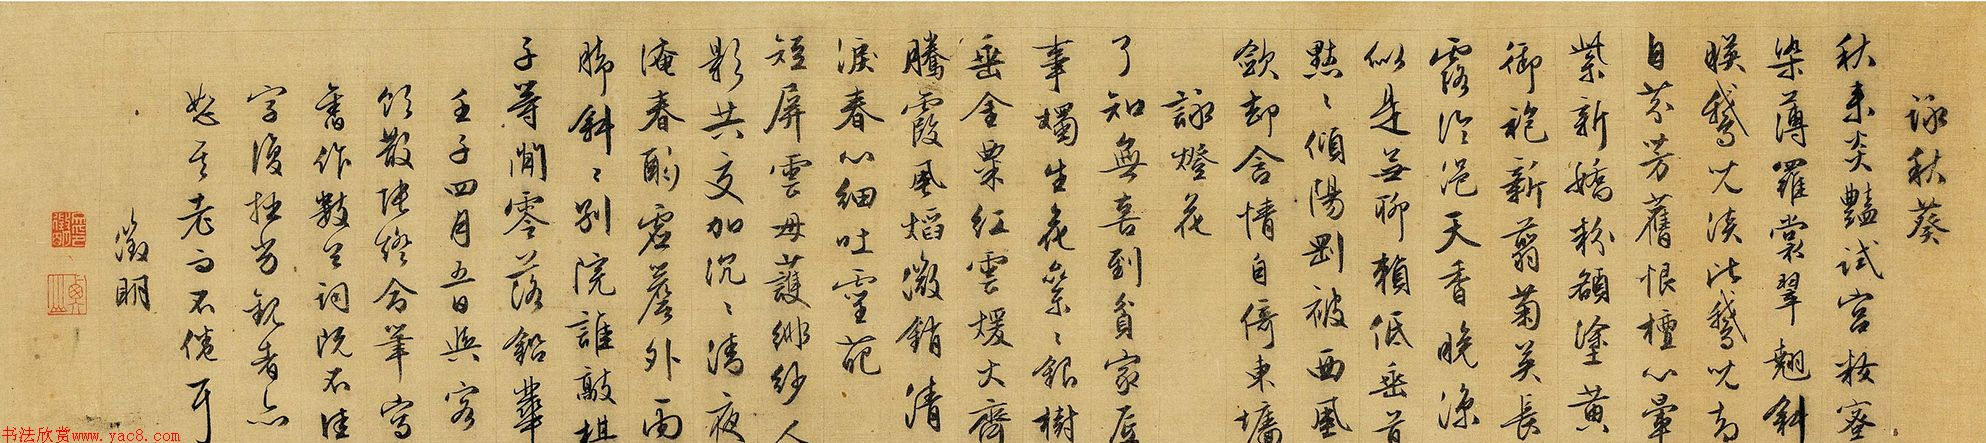 詠秋葵
秋来炎豔試宮妝密
染薄羅裳翠翹斜
映鵞兒淡淡鵞兒
自芬芳舊恨檀心暈
紫新嬌粉額塗黃
御袍新翦菊英長
露冷浥天香晚涼
似是無聊賴低垂首
點點傾陽剛被西風
斂却含情自倚東墻
詠燈花
了知無喜到貧家
事燭生花絫絫銀樹
垂金粟紅雲煖大齊
騰霞風焰微銷清
淚春心細吐靈葩
短屏雲母護緋紗人
影共交加沉沉清夜
淹春酌虛簷外雨
腳斜斜別院誰敲棋
子等閒零落鉛華
壬子四月五日與客
飲散張燈命筆寫
舊作數首詞既不佳
字復拙劣觀者亦
恕其老而不倦耳
徵明
书法欣赏www.yac8.com